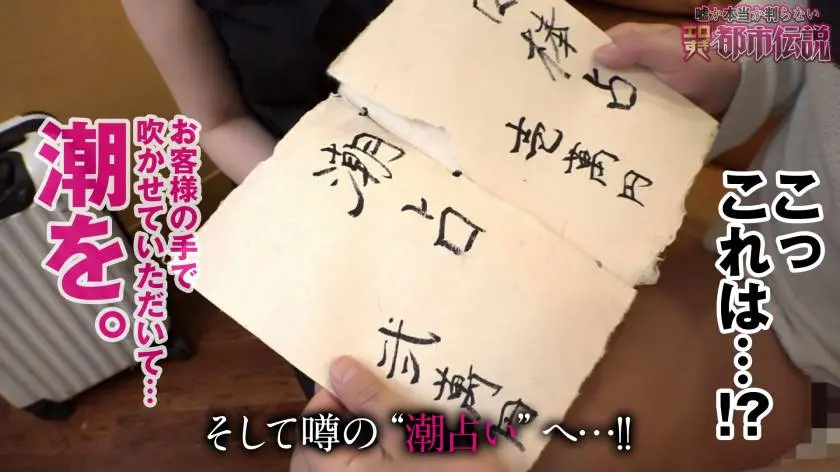 嘘か本当か判らない
エロすぎ都市伝説
こっ
これは…!?
占
壱萬円
潮占
弐萬円
お客様の手で
吹かせていただいて…
潮を。
そして噂の“潮占い”へ…!!